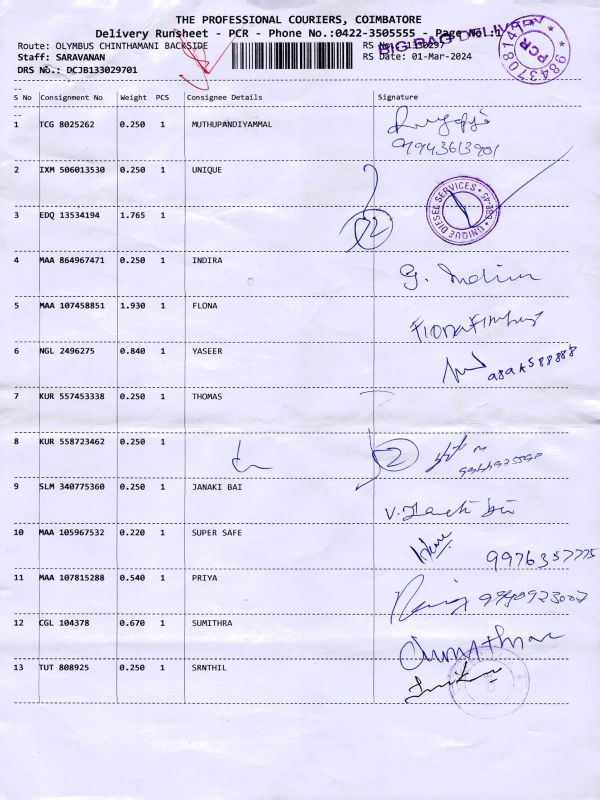 THE PROFESSIONAL COURIERS, COIMBATORE
Delivery Runsheet - PCR - Phone No.:0422-3505555 - Page No.:1
Route: OLYMBUS CHINTHAMANI BACKSIDE
RS No.: 1330297
BIG BAG DELIVERY
PCR
Staff: SARAVANAN
RS Date: 01-Mar-2024
DRS No.: DCJB133029701
S No Consignment No Weight PCS Consignee Details Signature
1 TCG 8025262 0.250 1 MUTHUPANDIYAMMAL
2 IXM 506013530 0.250 1 UNIQUE
UNIQUE DIESEL SERVICES
3 EDQ 13534194 1.765 1
2
4 MAA 864967471 0.250 1 INDIRA
G. Indira
5 MAA 107458851 1.930 1 FLONA
6 NGL 2496275 0.840 1 YASEER
7 KUR 557453338 0.250 1 THOMAS
8 KUR 558723462 0.250 1
2
9 SLM 340775360 0.250 1 JANAKI BAI
V. Janaki bai
10 MAA 105967532 0.220 1 SUPER SAFE
9976357775
11 MAA 107815288 0.540 1 PRIYA
12 CGL 104378 0.670 1 SUMITHRA
13 TUT 808925 0.250 1 SRNTHIL